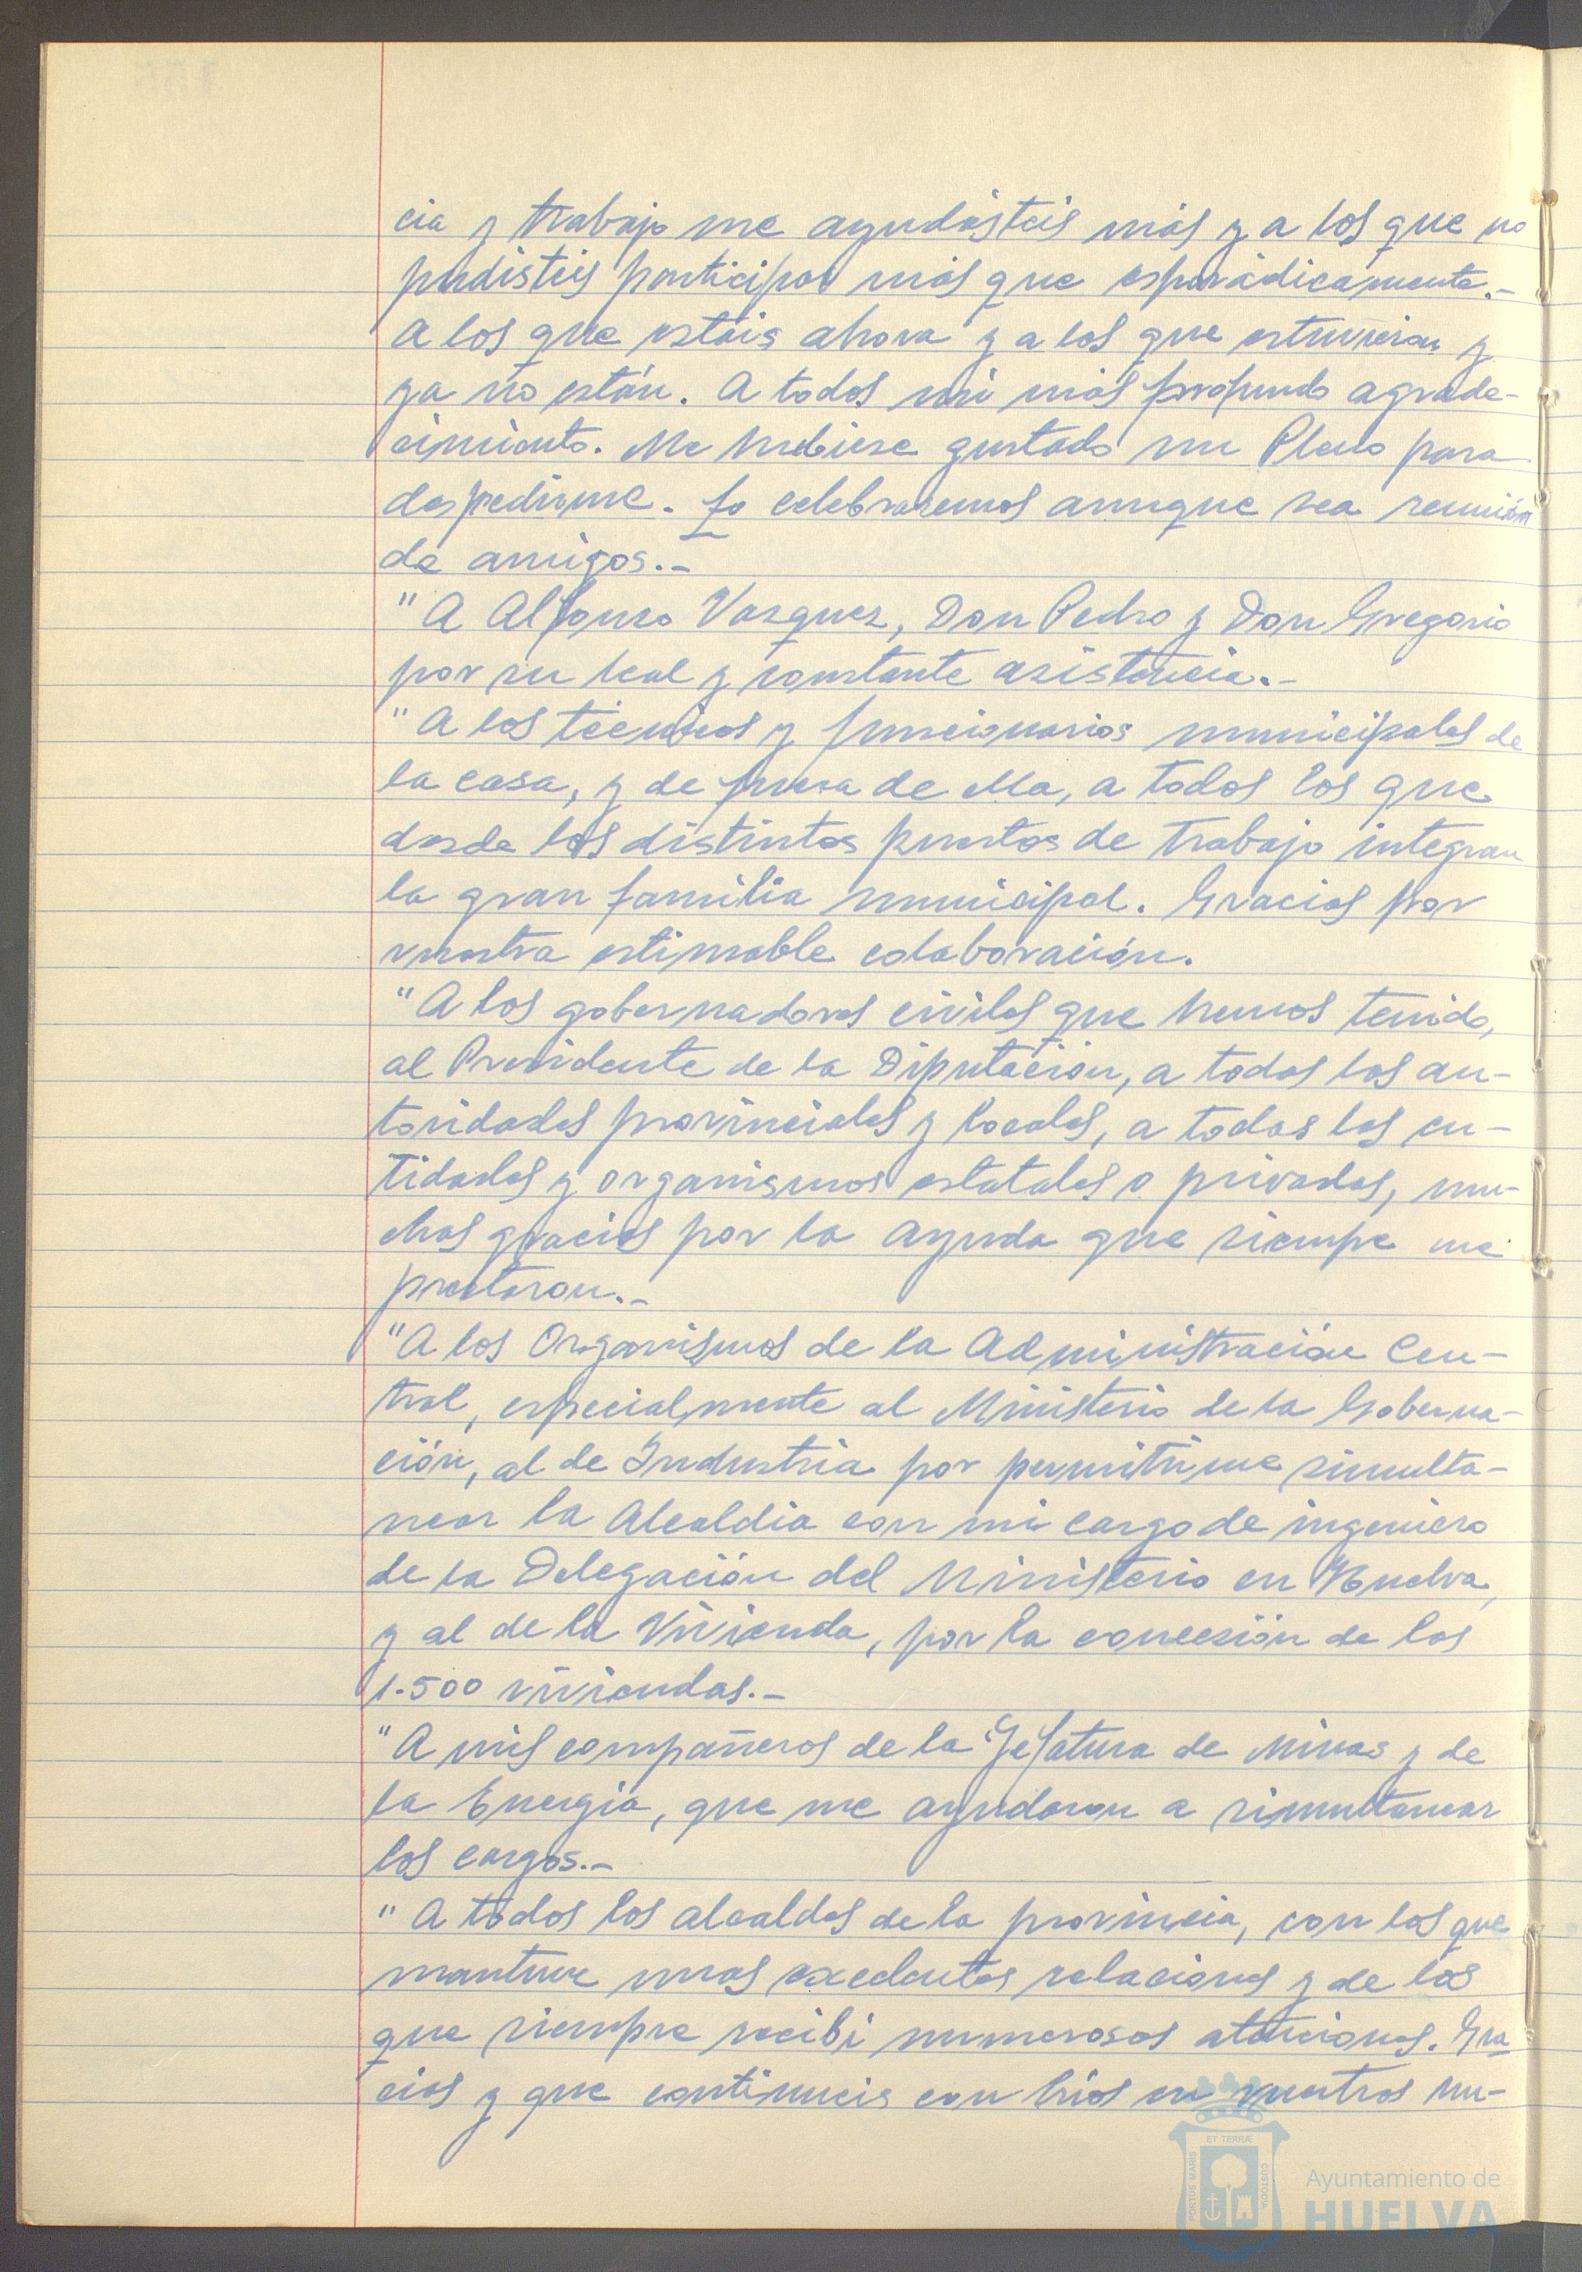 cia y trabajo me ayudásteis más y a los que no
pudisteis participar más que esporádicamente.-
A los que estáis ahora y a los que estuvieron y
ya no están. A todos mi más profundo agrade-
cimiento. Me hubiese gustado un Pleno para
despedirme. Lo celebraremos aunque sea reunión
de amigos.-
"A Alfonso Vazquez, Don Pedro y Don Gregorio
por su leal y constante asistencia.-
"A los técnicos y funcionarios municipales de
la casa, y de fuera de ella, a todos los que
desde los distintos puestos de trabajo integran
la gran familia municipal. Gracias por
vuestra estimable colaboración.
"A los gobernadores civiles que hemos tenido,
al Presidente de la Diputación, a todas las au-
toridades provinciales y locales, a todas las en-
tidades y organismos estatales o privados, mu-
chas gracias por la ayuda que siempre me
prestaron.-
"A los Organismos de la Administración Cen-
tral, especialmente al Ministerio de la Goberna-
ción, al de Industria por permitirme simulta-
near la Alcaldia con mi cargo de ingeniero
de la Delegación del Ministerio en Huelva,
y al de la Vivienda, por la concesión de las
1.500 viviendas.-
"A mis compañeros de la Jefatura de Minas y de
la Energia, que me ayudaron a simultanear
los cargos.-
"A todos los alcaldes de la provincia, con los que
mantuve unas excelentes relaciones y de los
que siempre recibi numerosas atenciones. Gra
cias y que continueis con brios en vuestros mu-
PORTUS MARIS
ET TERRÆ
CUSTODIA
Ayuntamiento de
HUELVA